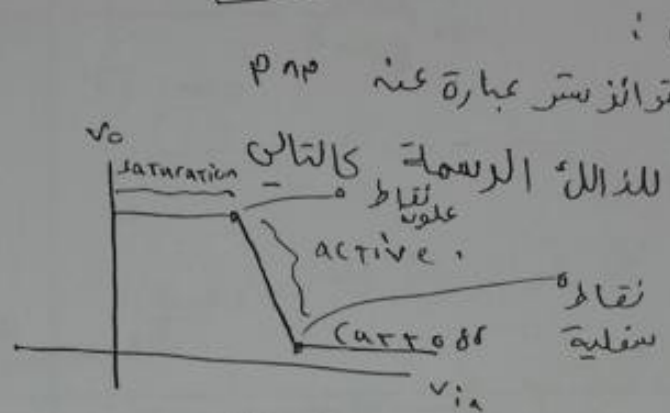 :
ترانزستر عبارة عنه pnp
للذالك الرسمة كالتالي
Vo
saturation
نقاط
علويه
active.
نقاط
سفلية
Cuttoff
Vin